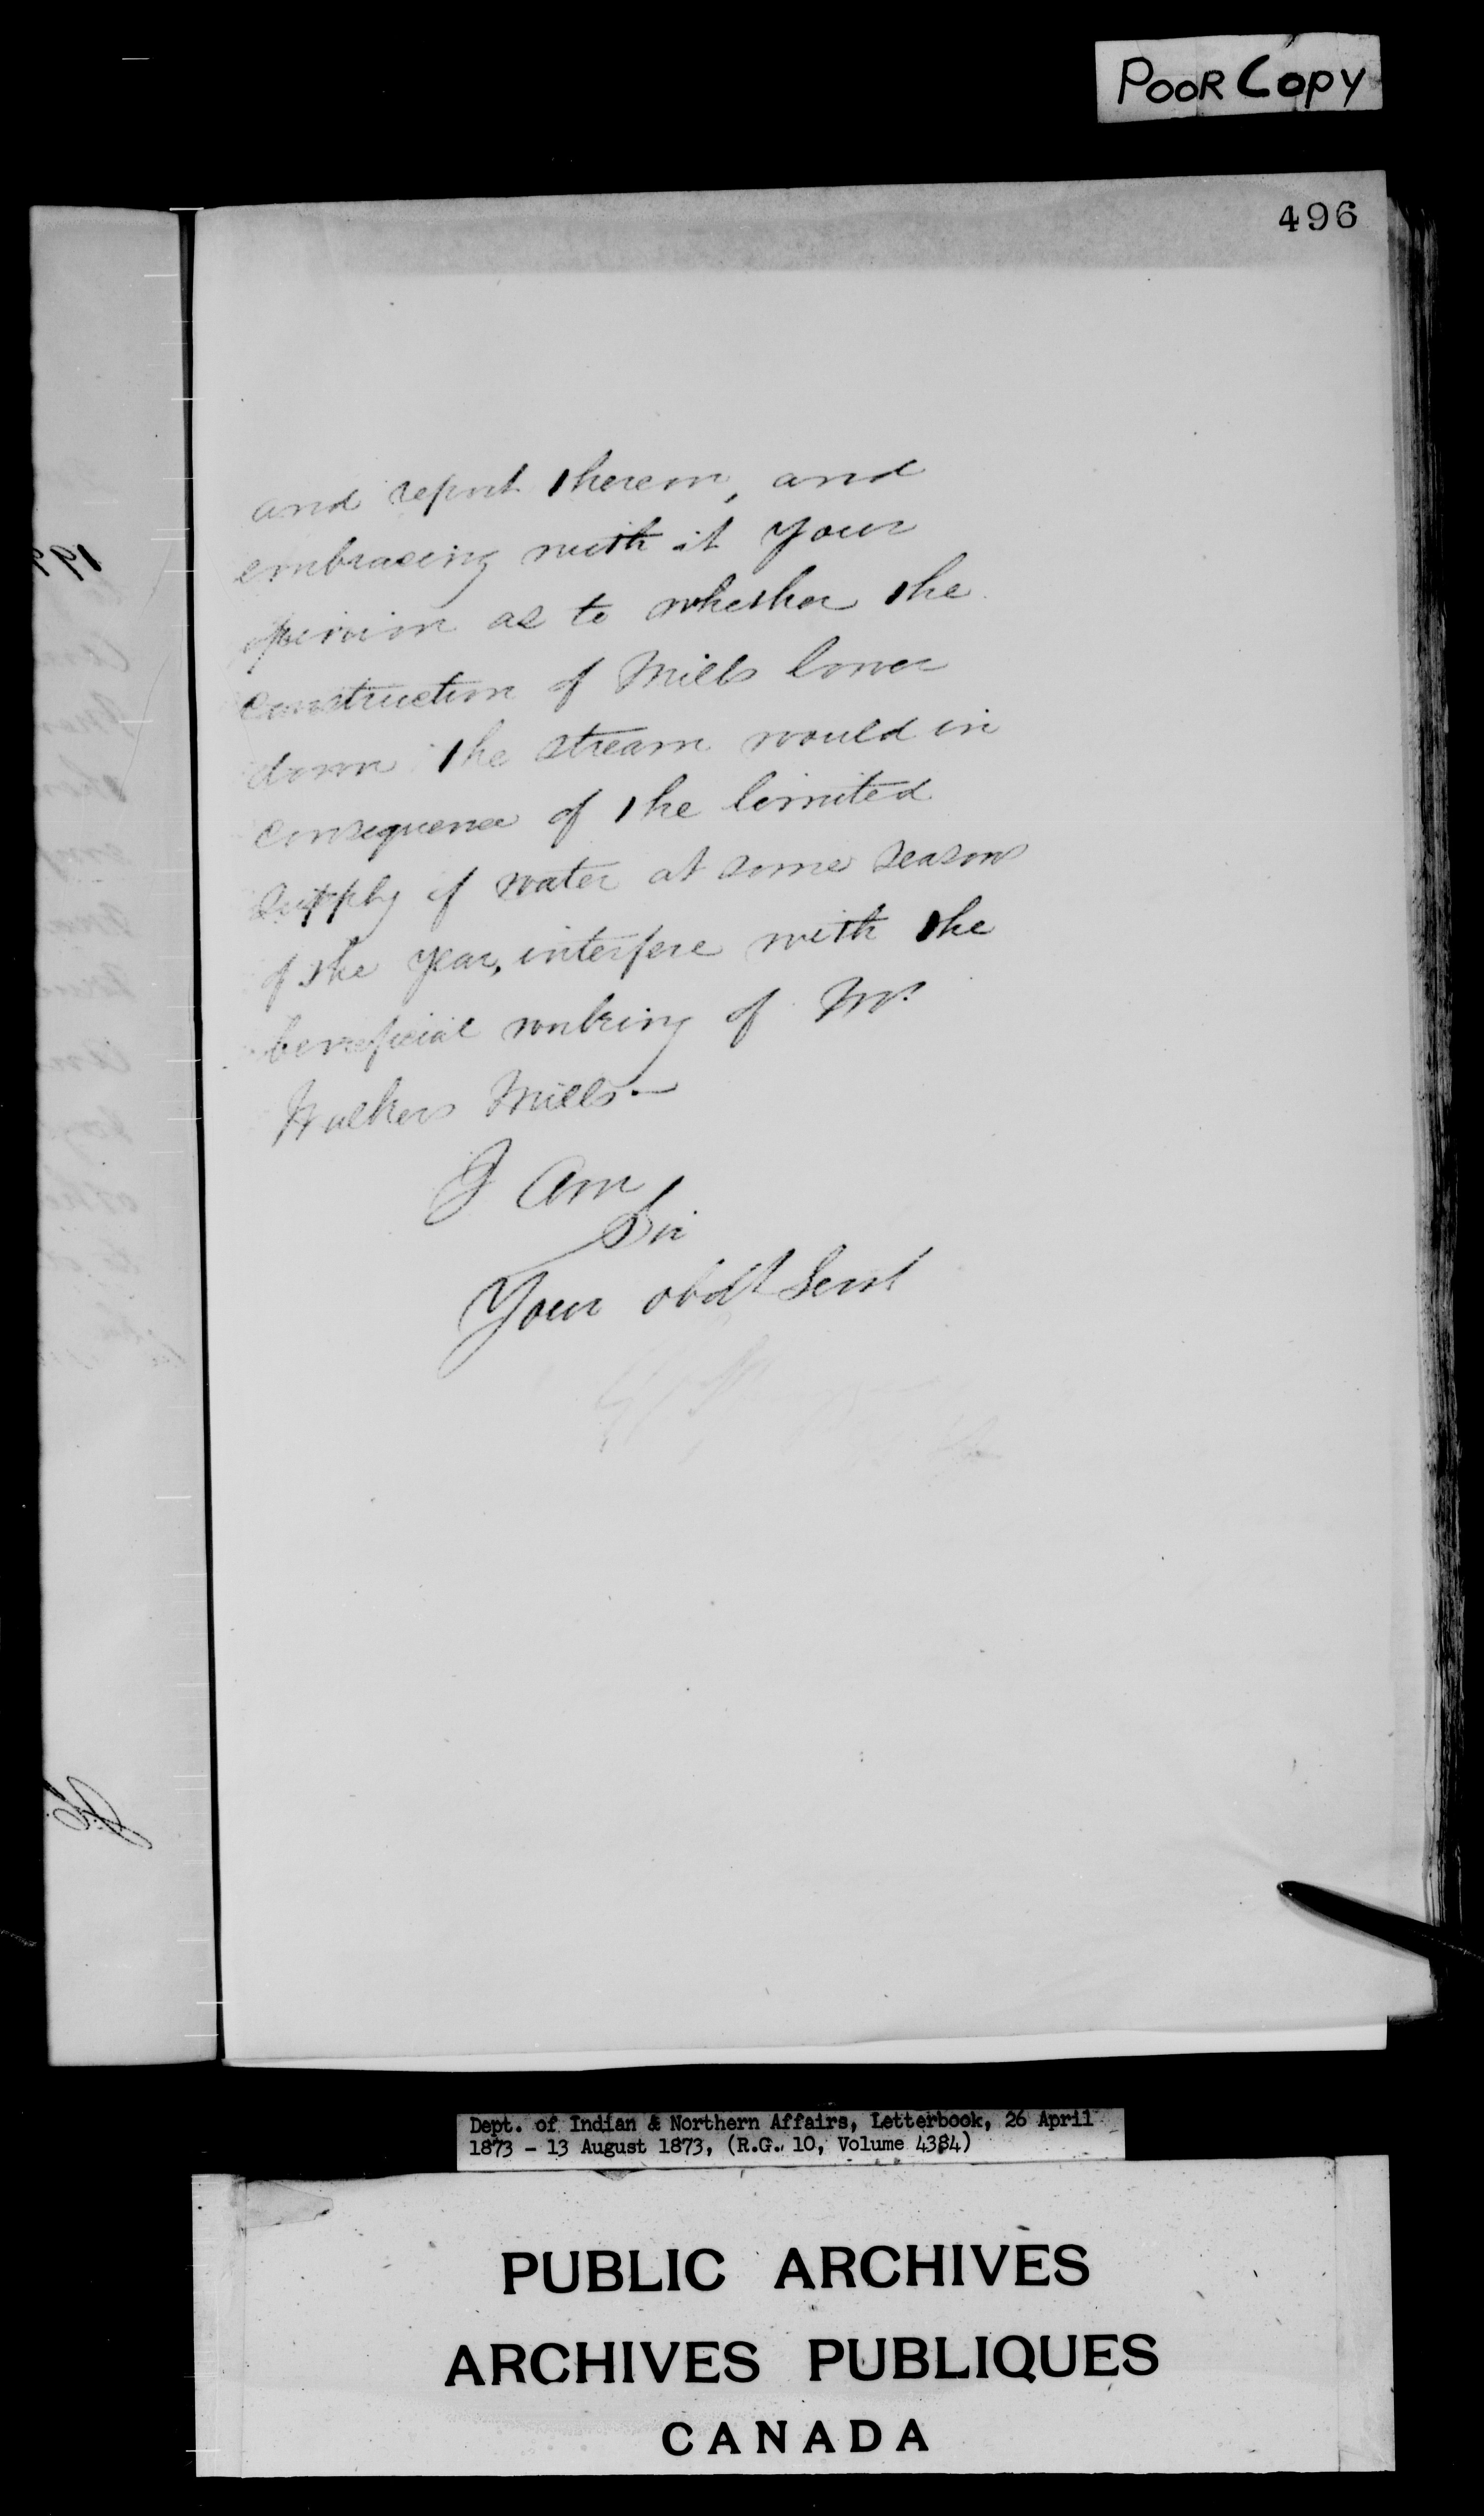 POOR COPY
496
and report thereon, and
embracing with it your
opinion as to whether the
construction of Mills lower
down the stream would in
consequence of the limited
supply of water at some seasons
of the year, interfere with the
beneficial working of Mr
Walkers Mills—
I am
Sir
Your obdt Servt
Dept. of Indian & Northern Affairs, Letterbook, 26 April
1873 - 13 August 1873, (R.G. 10, Volume 4384)
PUBLIC ARCHIVES
ARCHIVES PUBLIQUES
CANADA